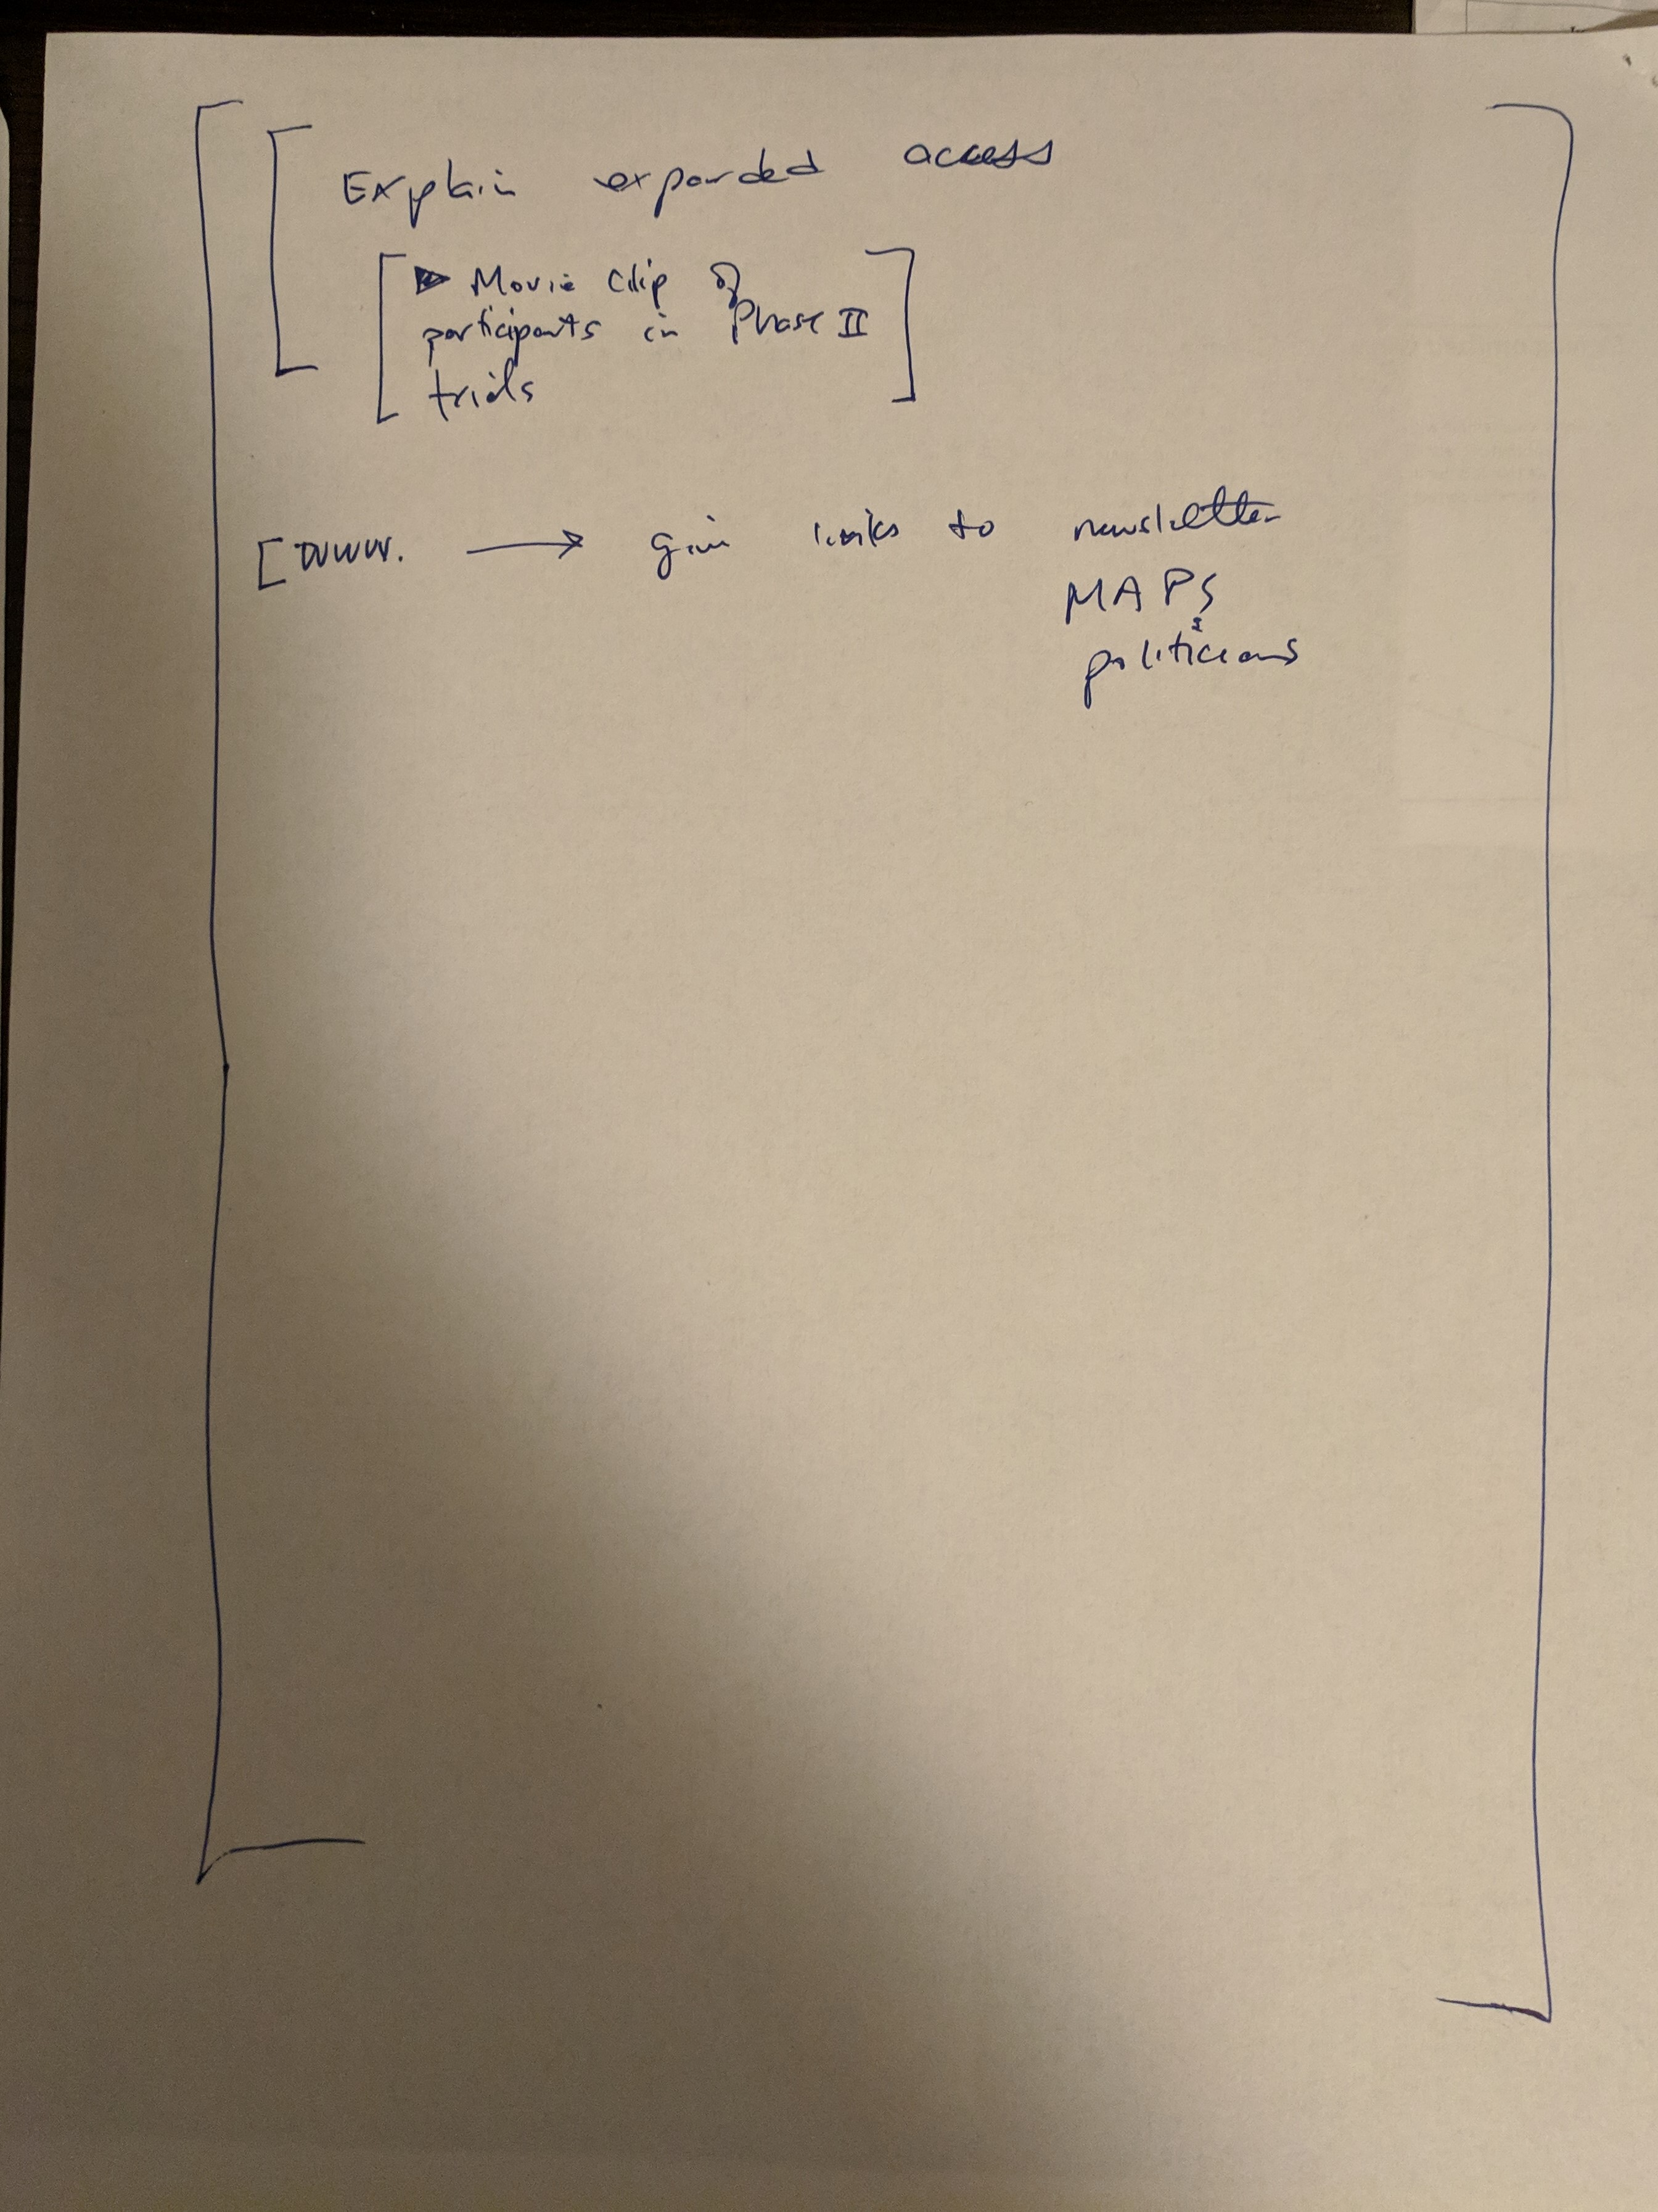 Explain expanded access
▶ Movie clip of
participants in Phase II
trials
[www. → give links to newsletter
MAPS
politicians